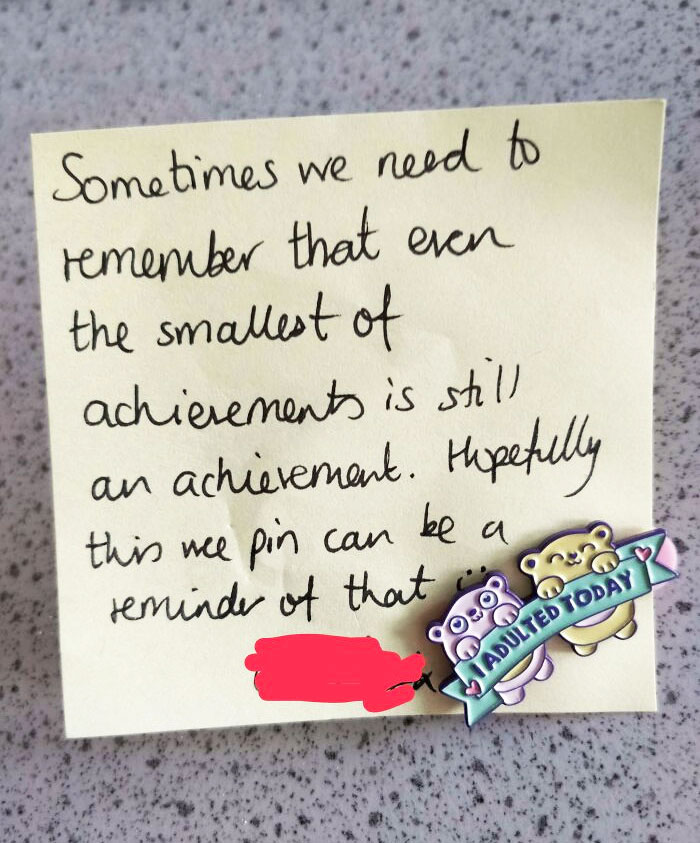 Sometimes we need to
remember that even
the smallest of
achievements is still
an achievement. Hopefully
this wee pin can be a
reminder of that :)
x
I ADULTED TODAY